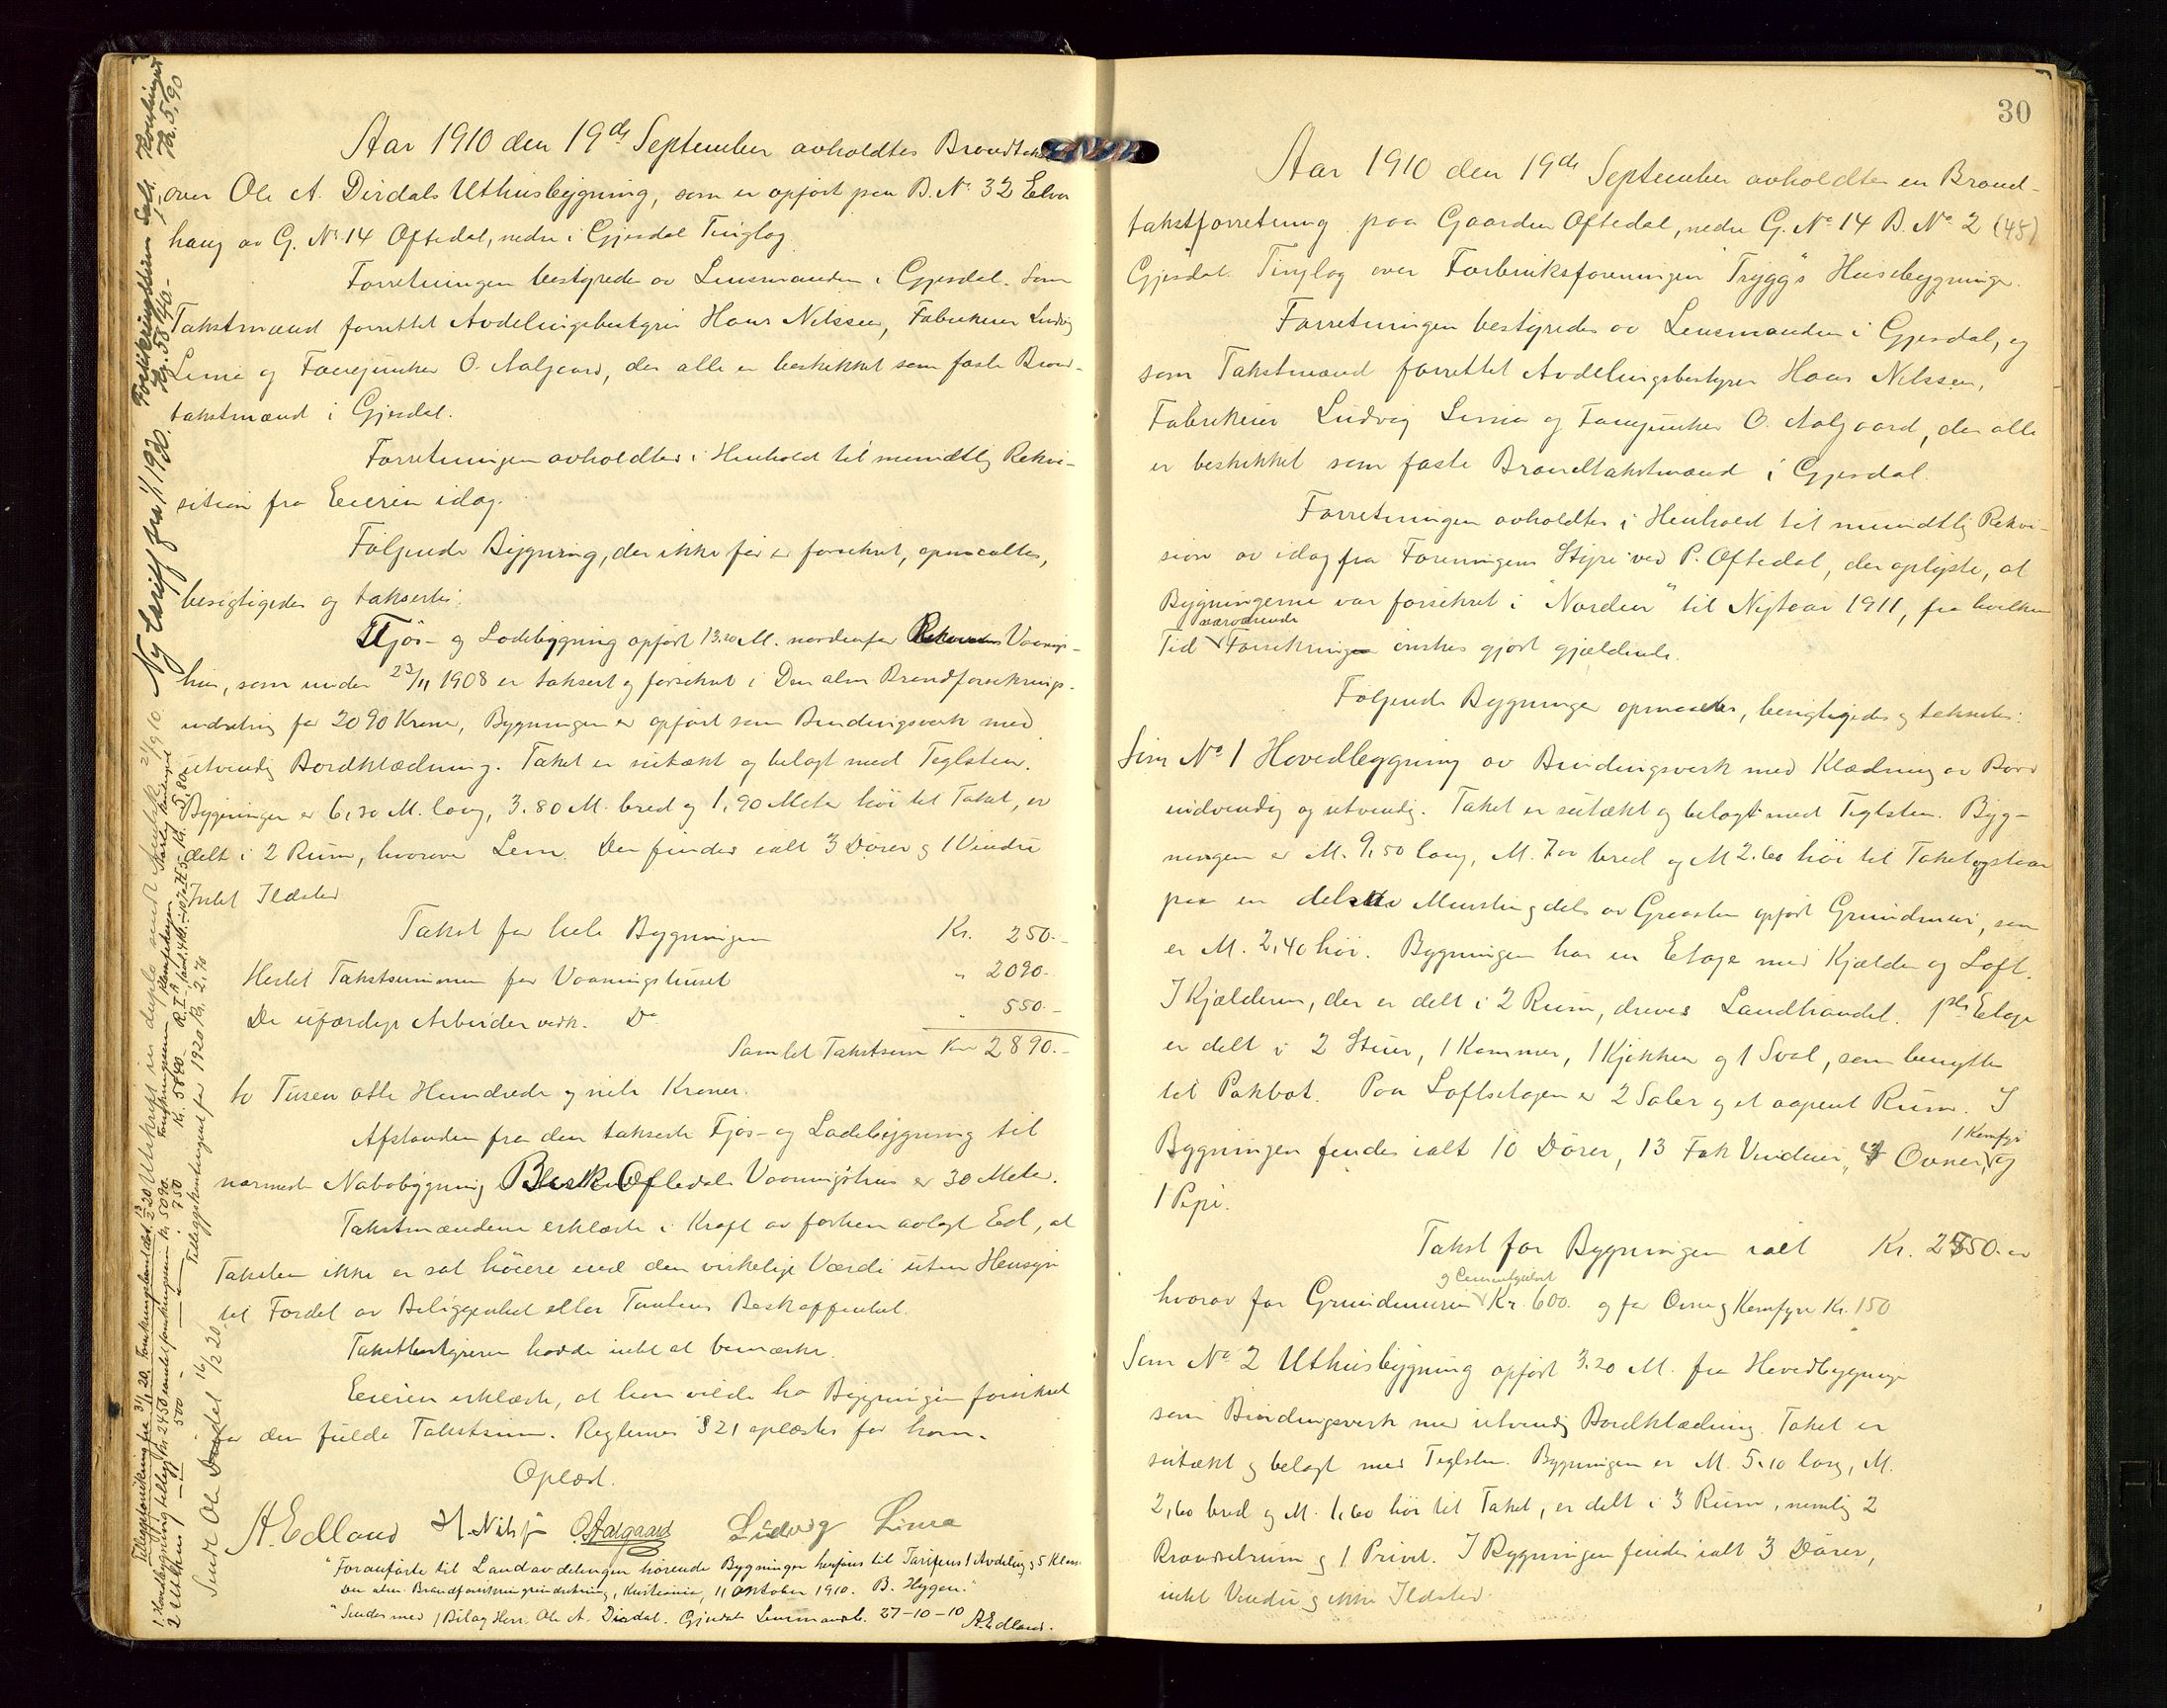 Aar 1910 den 19de September avholdtes Brandtakst
over Ole A. Dirdals Uthusbygning, som er opført paa B. No 32 Elver
haug av G. No 14 Oftedal, nedre i Gjesdal Tinglag
Forretningen bestyredes av Lensmanden i Gjesdal. Som
Takstmænd forrettet Avdelingsbestyrer Hans Nilssen, Fabrikeier Ludvig
Lima og Fanejunker O. Aalgaard, der alle er beskikket som faste Brand-
takstmænd i Gjesdal.
Forretningen avholdtes i Henhold til mundtlig Rekvi-
sition fra Eieren idag.
Følgende Bygning, der ikke før er forsikret, opmaaltes,
besigtigedes og taksertes:
Fjøs- og Ladebygning opført 13.20 M. nordenfor Vaanings-
hus, som under 23/11 1908 er taksert og forsikret i Den alm Brandforsikrings-
indretning for 2090 Kroner, Bygningen er opført som Bindingsverk med
utvendig Bordklædning. Taket er sutækt og belagt med Teglsten.
Bygningen er 6,30 M. lang, 3.80 M. bred og 1,90 Meter høi til Taket, er
delt i 2 Rum, hvorover Lem. Der findes ialt 3 Dører og 1 Vindu
Intet Ildsted
Takst for hele Bygningen Kr. 250.-
Hertil Takstsummen for Vaaningshuset " 2090.-
De ufærdige Arbeider vedk. Do " 550.-
Samlet Takstsum Kr 2890.-
to Tusen otte Hundrede og niti Kroner.
Afstanden fra den takserte Fjøs- og Ladebygning til
nærmeste Nabobygning Oftedals Vaaningshus er 30 Meter.
Takstmændene erklærte i Kraft av forhen avlagt Ed, at
Taksten ikke er sat høiere end den virkelige Værdi uten Hensyn
til Fordel av Beliggenhet eller Tomtens Beskaffenhet.
Takstbestyreren hadde intet at bemærke.
Eieren erklærte, at han vilde ha Bygningen forsikret
for den fulde Takstsum. Reglernes § 21 oplæstes for ham.
Oplæst.
A. Edland H. Nilssen O. Aalgaard Ludvig Lima
"Foranførte til Landavdelingen hørende Bygninger henføres til Tarifens 1 Avdeling 5 Klasse
Den alm. Brandforsikringsindretning, Kristiania, 11 Oktober 1910. B. Hygen."
"Sendes med 1 Bilag Herr. Ole A. Dirdal. Gjesdal Lensmansb. 27-10-10 A. Edland.
Ny tariff fra 1/1 1920. Forsikringssum Kontingent
Kr. 5840.- Kr. 5,90
Utskrift in duplo sendt 21/9 10.
Tilleggskontingent for 1920 Kr. 2,70
Sendt Ole Dirdal 16/2 20
30
Aar 1910 den 19de September avholdtes en Brand-
takstforretning paa Gaarden Oftedal, nedre G. No 14 B. No 2 (45)
Gjesdal Tinglag over Forbruksforeningen "Tryggs" Husebygninger.
Forretningen bestyredes av Lensmanden i Gjesdal, og
som Takstmænd forrettet Avdelingsbestyrer Hans Nilssen,
Fabrikeier Ludvig Lima og Fanejunker O. Aalgaard, der alle
er beskikket som faste Brandtakstmænd i Gjesdal.
Forretningen avholdtes i Henhold til mundtlig Rekvi-
sion av idag fra Foreningens Styre ved P. Oftedal, der oplyste, at
Bygningerne var forsikret i "Norden" til Nytaar 1911, fra hvilken
nærværende
Tid Forsikring ønskes gjort gjældende.
Følgende Bygninger opmaaltes, besigtigedes og takseredes:
Som No 1 Hovedbygning av Bindingsverk med Klædning av Bord
indvendig og utvendig. Taket er sutækt og belagt med Teglsten. Byg-
ningen er M. 9,50 lang, M. 7.00 bred og M 2.60 høi til Taket og staar
paa en dels av Mursten og dels av Graasten opført Grundmur, som
er M. 2,40 høi. Bygningen har en Etage med Kjælder og Loft.
I Kjælderen, der er delt i 2 Rum, drives Landhandel. 1ste Etage
er delt i 2 Stuer, 1 Kammer, 1 Kjøkken og 1 Sval, som benyttes
til Pakbod. Paa Loftsetagen er 2 Saler og et aapent Rum. I
1 Komfyr
Bygningen findes ialt 10 Dører, 13 Fak Vinduer, Ovner, og
1 Pipe.
Takst for Bygningen ialt Kr. 2550.-
og Cementgulvet
hvorav for Grundmuren Kr. 600. og for Ovne og Komfyr Kr. 150
Som No 2 Uthusbygning opført 3.20 M. fra Hovedbygninge
som Bindingsverk med utvendig Bordklædning. Taket er
sutækt og belagt med Teglsten. Bygningen er M. 5.10 lang, M.
2,60 bred og M. 1,60 høi til Taket, er delt i 3 Rum, nemlig 2
Brændselrum og 1 Privet. I Bygningen findes ialt 3 Dører,
intet Vindu og ikke Ildsted.